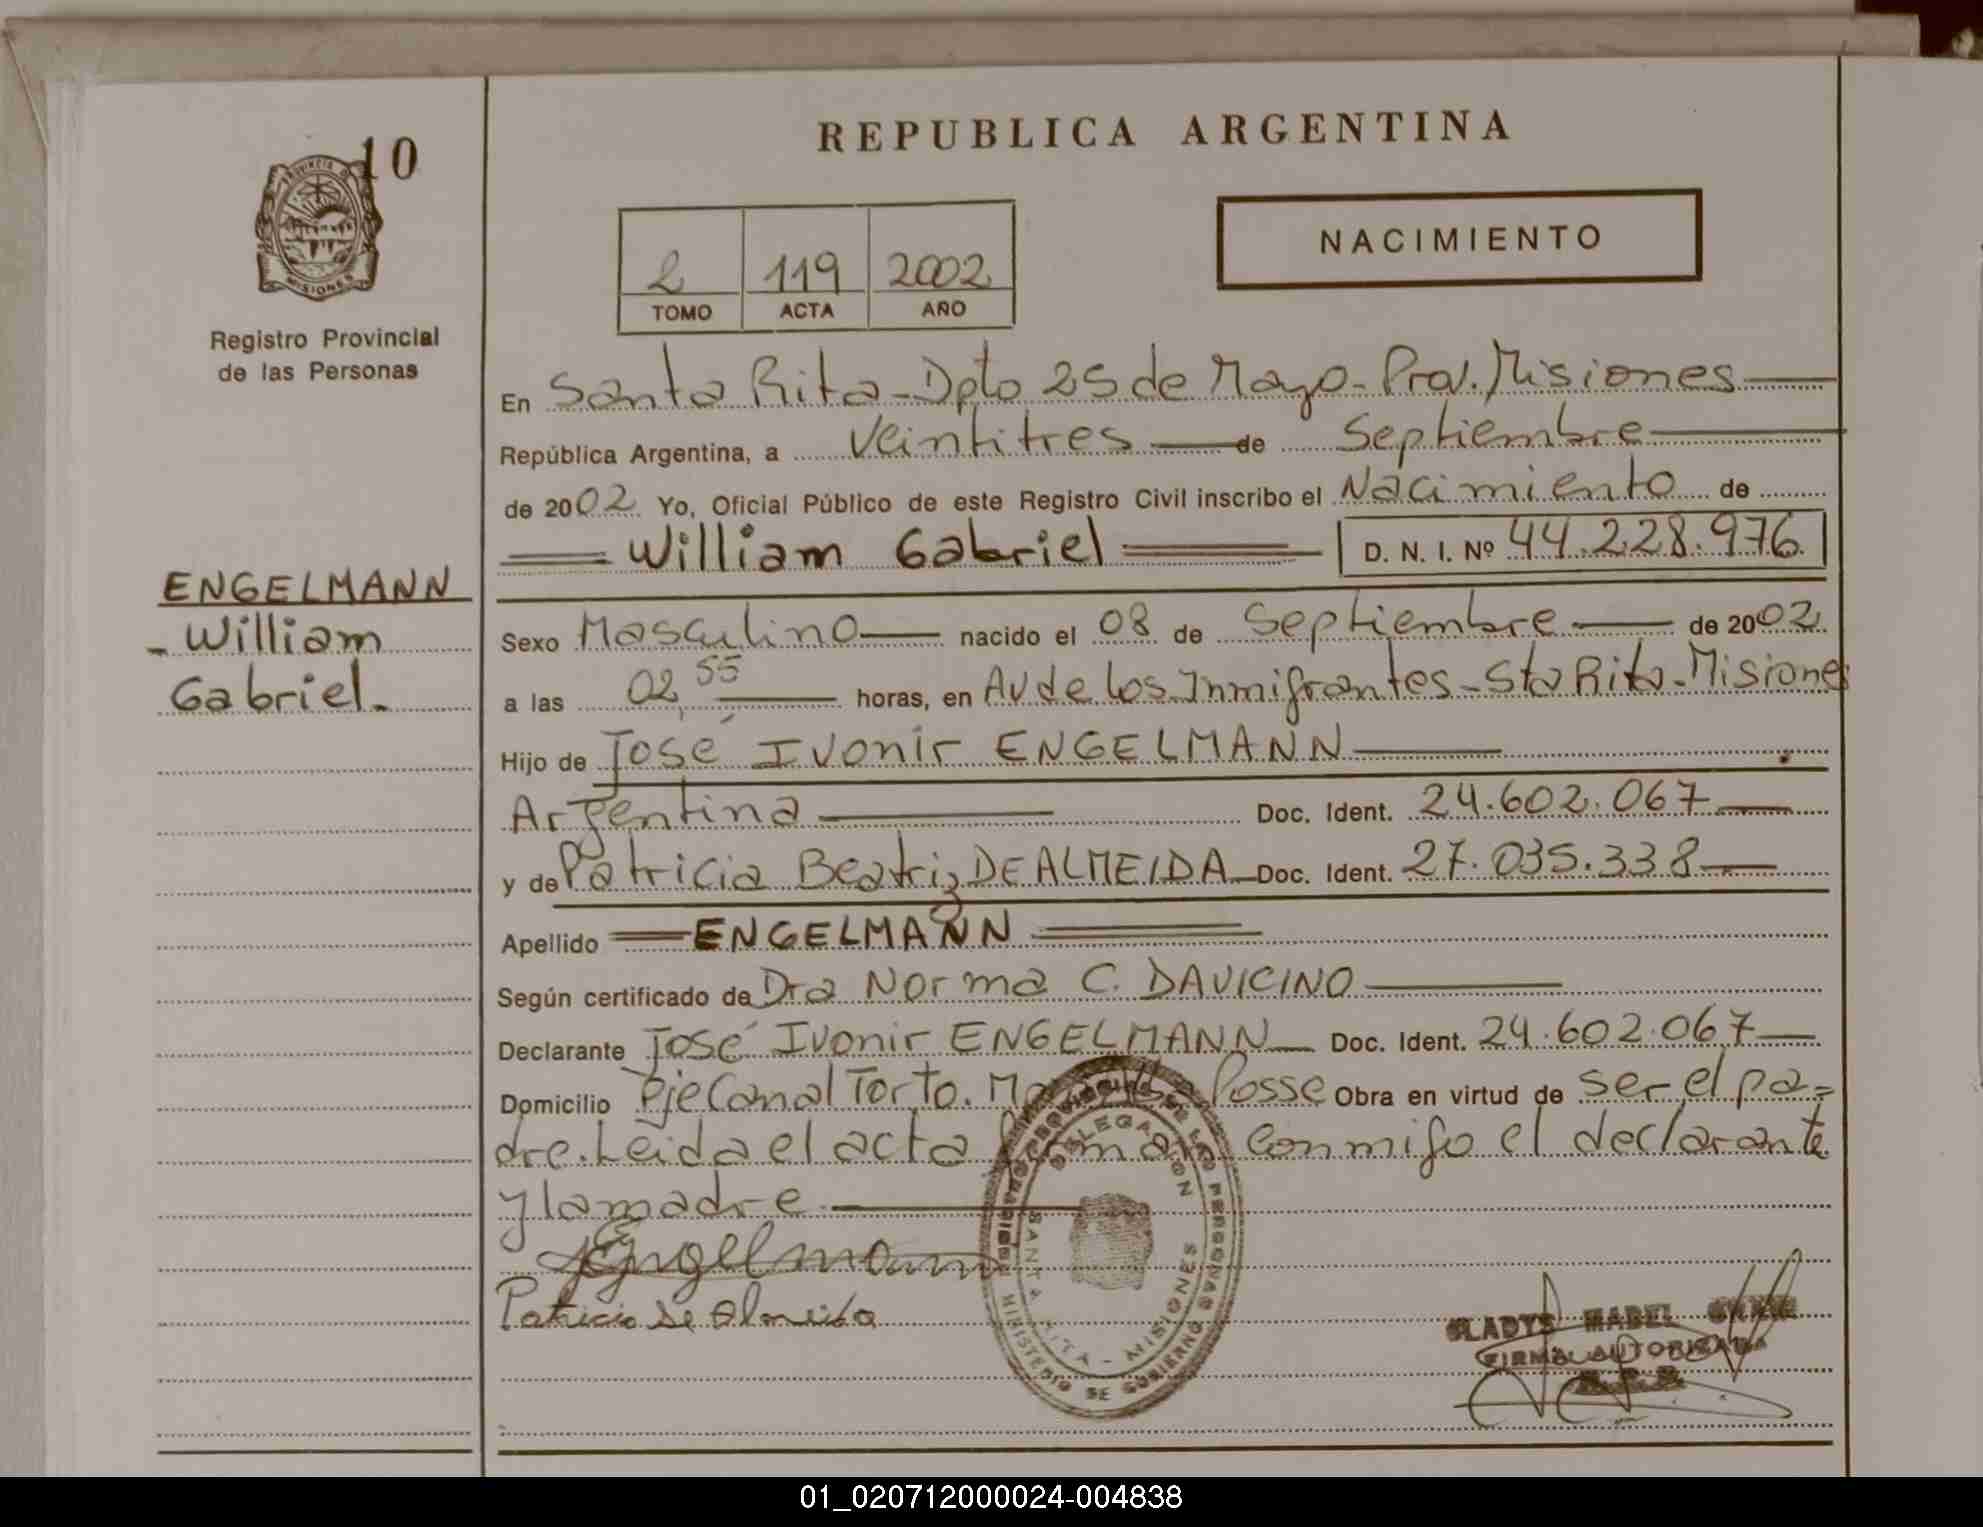 10
PROVINCIA DE
MISIONES
Registro Provincial
de las Personas
ENGELMANN
- William
Gabriel.-
REPUBLICA ARGENTINA
NACIMIENTO
2 119 2002
TOMO ACTA AÑO
En Santa Rita - Dpto 25 de Mayo - Prov. Misiones
República Argentina, a Veintitres de Septiembre
de 2002 Yo, Oficial Público de este Registro Civil inscribo el Nacimiento de
William Gabriel D. N. I. Nº 44.228.976
Sexo Masculino nacido el 08 de Septiembre de 2002
a las 02,55 horas, en Av de los Inmigrantes - Sta Rita - Misiones
Hijo de José Ivonir ENGELMANN
Argentina Doc. Ident. 24.602.067
y de Patricia Beatriz DE ALMEIDA Doc. Ident. 27.035.338
Apellido ENGELMANN
Según certificado de Dra Norma C. DAVICINO
Declarante José Ivonir ENGELMANN Doc. Ident. 24.602.067
Domicilio Pje Canal Torto. Posse Obra en virtud de ser el pa=
dre. Leida el acta conmigo el declarante
y la madre
Engelmann
Patricia de Almeida
REGISTRO PROVINCIAL DE LAS PERSONAS
MINISTERIO DE GOBIERNO
DELEGACION
SANTA RITA - MISIONES
GLADYS MABEL
FIRMA AUTORIZADA
01_020712000024-004838